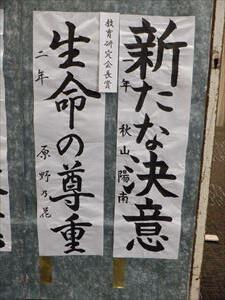 新たな決意
年 秋山陽南
教育研究会長賞
生命の尊重
二年 原野乃花